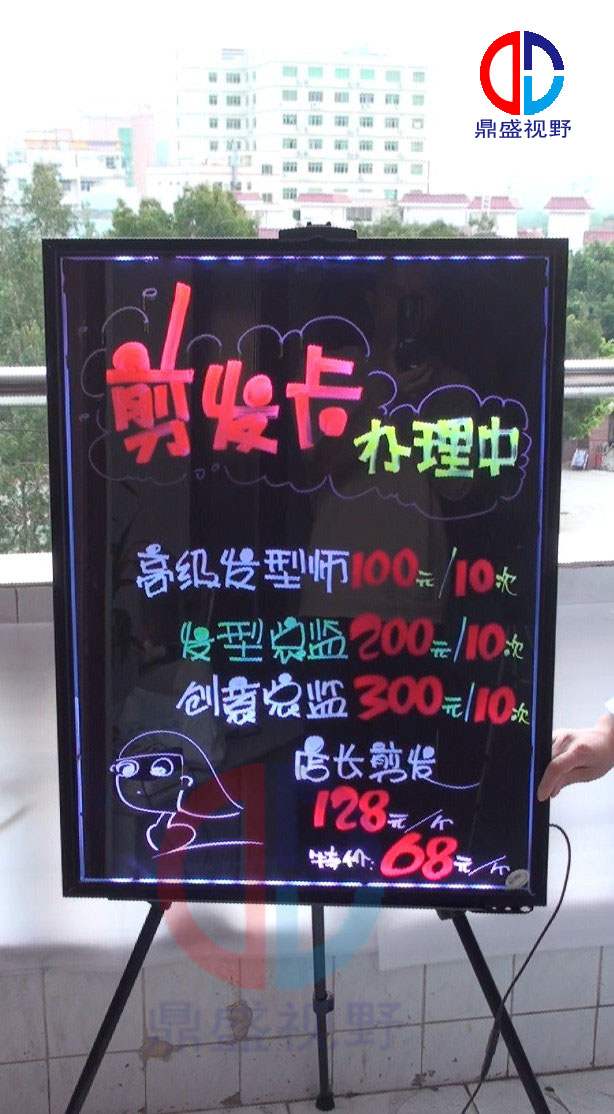 鼎盛视野
剪发卡
办理中
高级发型师100元/10次
发型总监200元/10次
创意总监300元/10次
店长剪发
128元/个
特价:68元/个
鼎盛视野